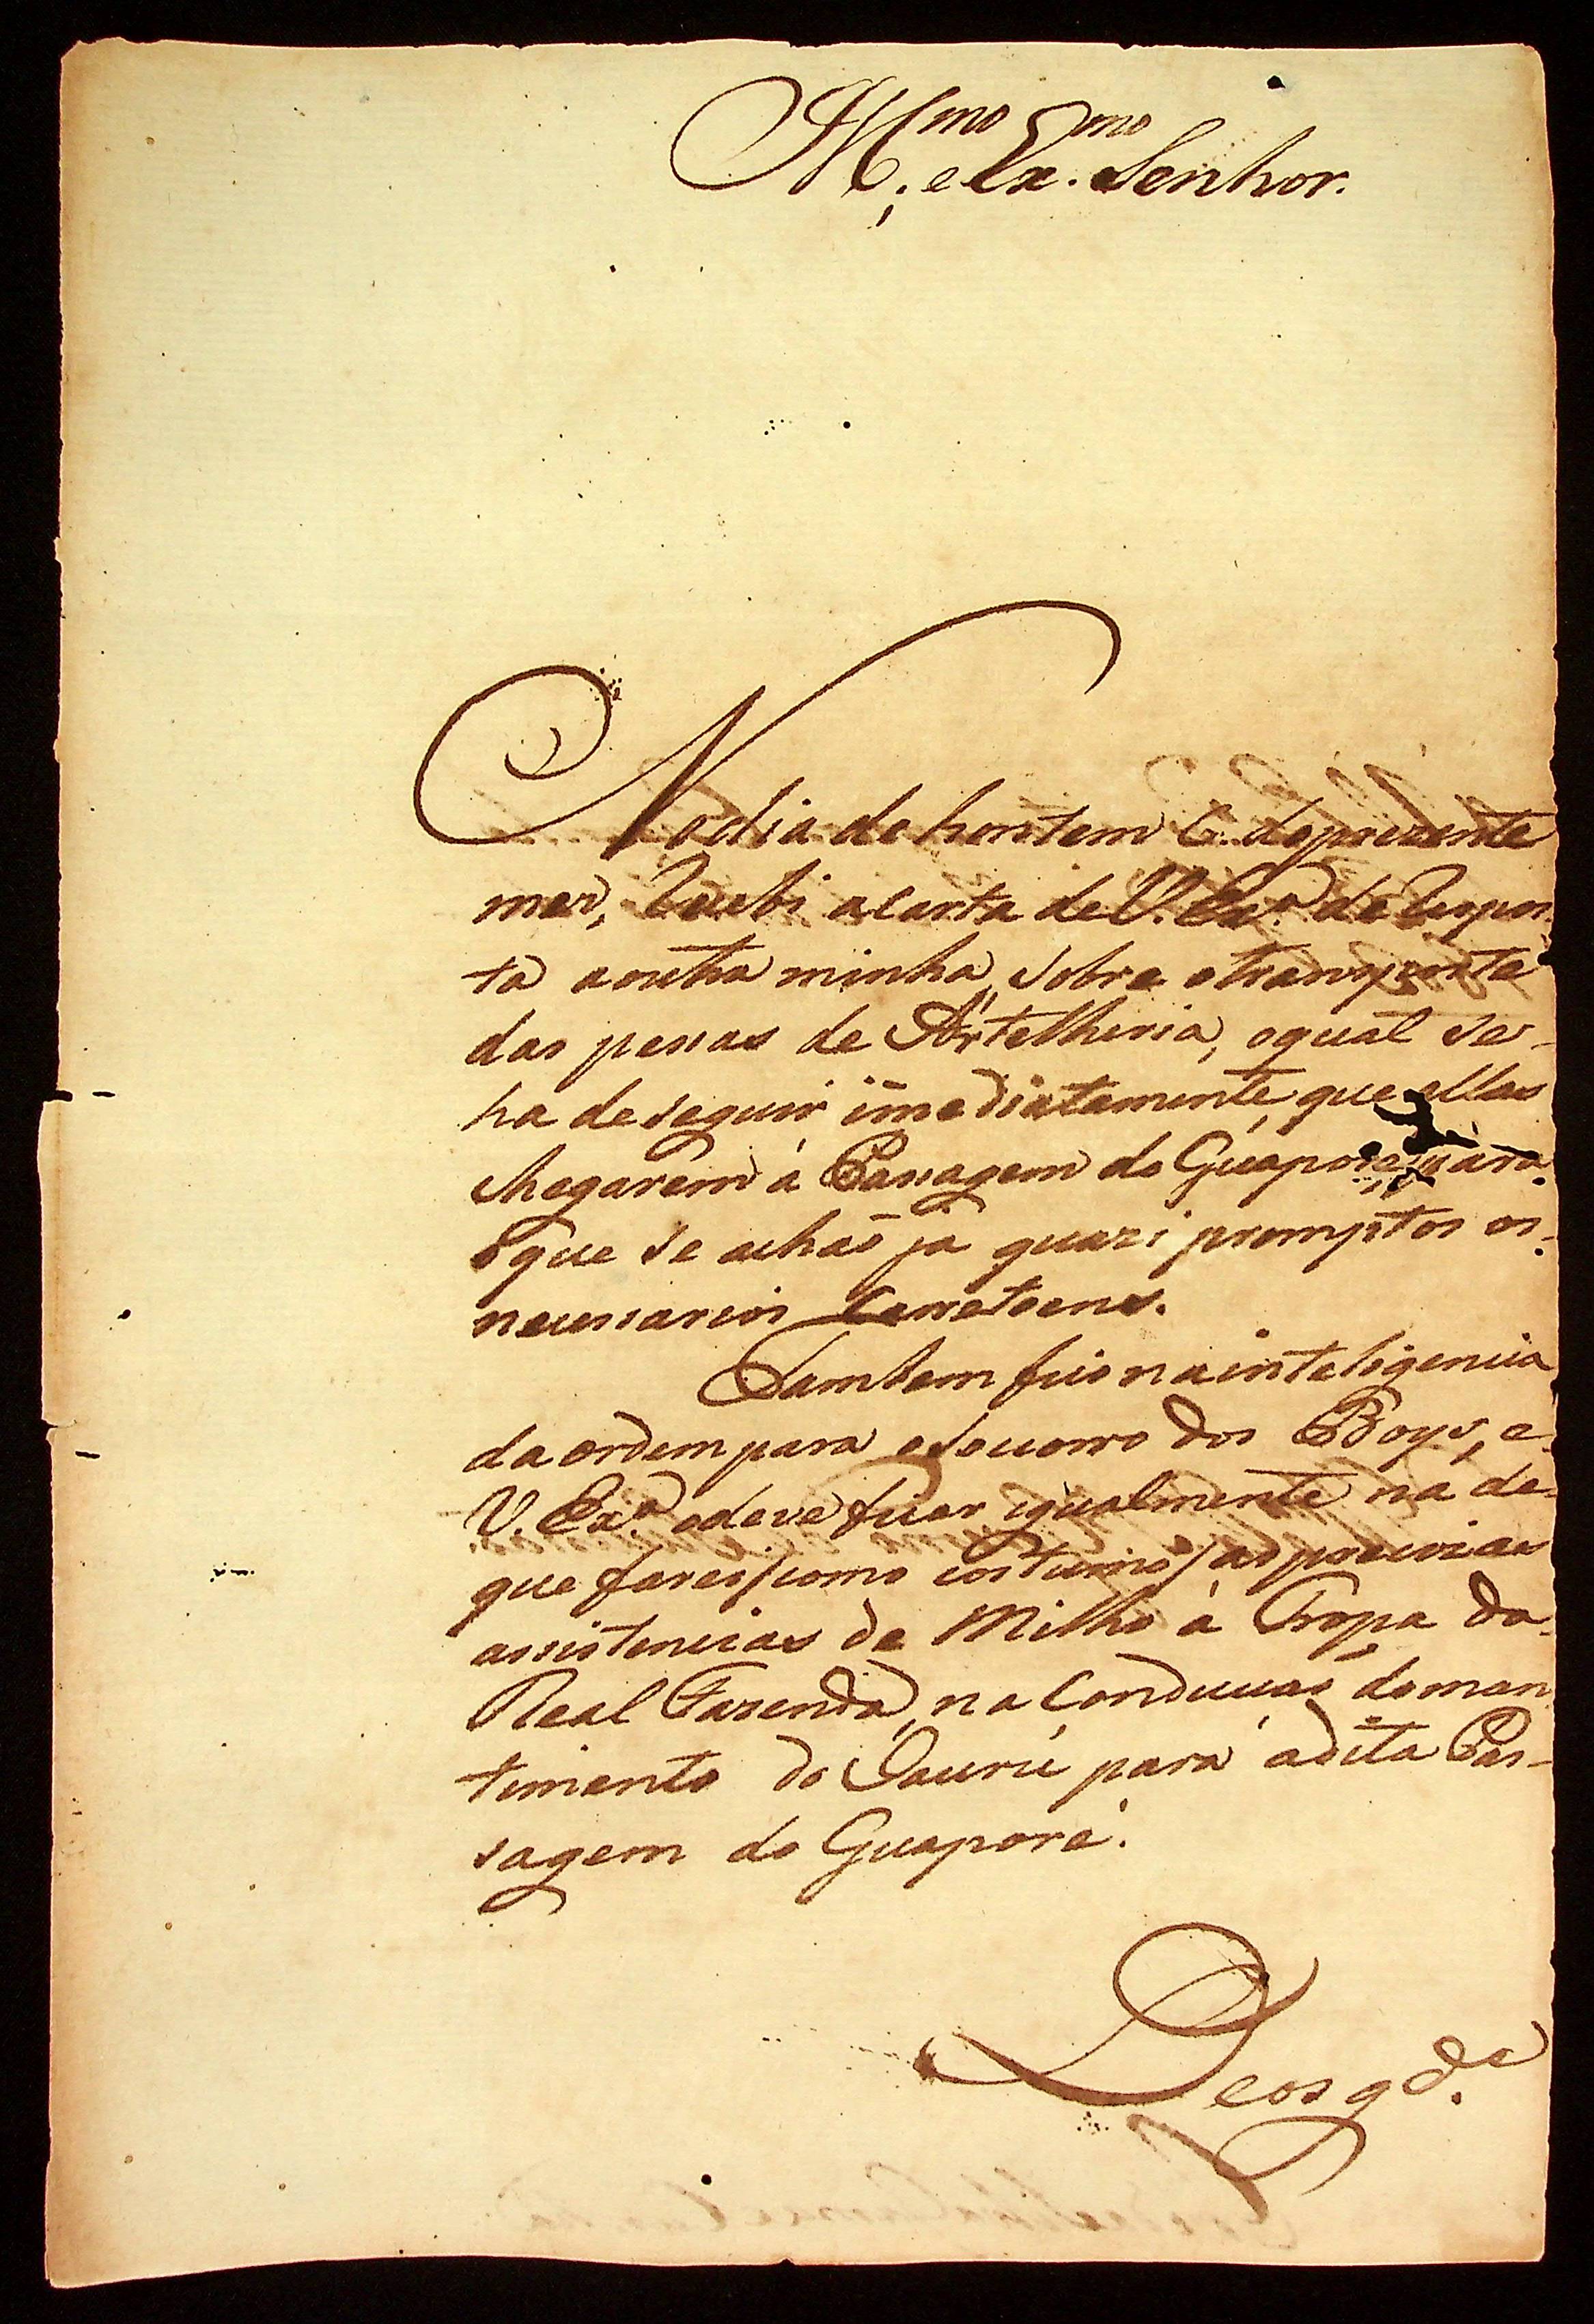 Ill.mo e Ex.mo Senhor.
No dia de hontem 6. do prezente
mez, recebi a Carta de V. Ex.a de respos-
ta a outra minha, sobre o transporte
das pessas de Artelheria, o qual se-
ha de seguir imediatamente que ellas
chegarem à Passagem do Guaporé, para
o que se achaõ ja quazi promptos os
necessarios Carretoens.
Tambem fico na inteligencia
da ordem para o socorro dos Boys, e
V. Ex.a o deve ficar igualmente na de
que farei (como costumo) as precizas
assistencias de Milho à Tropa da
Real Fazenda, na Conducçaõ do man
timento do Jaurú para a dita Pas-
sagem do Guaporé.
Deos g.de